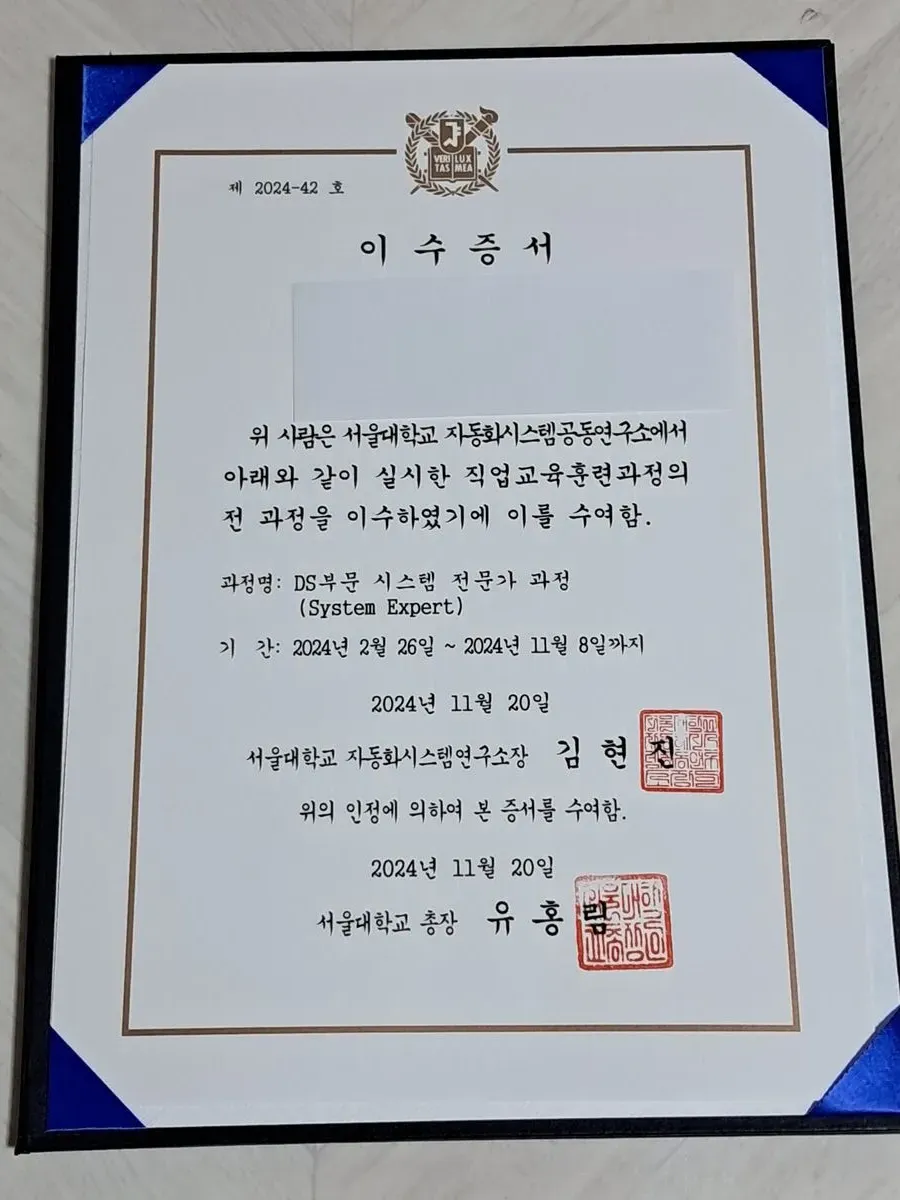 VERI LUX
TAS MEA
제 2024-42 호
이 수 증 서
위 사람은 서울대학교 자동화시스템공동연구소에서
아래와 같이 실시한 직업교육훈련과정의
전 과정을 이수하였기에 이를 수여함.
과정명: DS부문 시스템 전문가 과정
(System Expert)
기 간: 2024년 2월 26일 ~ 2024년 11월 8일까지
2024년 11월 20일
서울대학교 자동화시스템연구소장 김 현 진
위의 인정에 의하여 본 증서를 수여함.
2024년 11월 20일
서울대학교 총장 유 홍 림